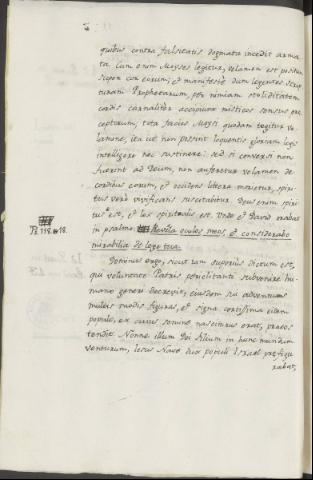 quibus contra falsitatis dogmata incedit arma-
ta. Cum enim Moyses legitur, velamen est positum
super cor eorum; et manifeste dum legentes scrip-
turam Prophetarum, per nimiam stoliditatem
cordis carnaliter accipiunt misticos sensus prae-
ceptorum, tota facies Moysi quodam tegitur ve-
lamine, ita ut non possint loquentis gloriam legis
intelligere nec sustinere: sed si conversi non
fuerint ad Deum, non auferetur velamen de
cordibus eorum, et occidens littera morietur, spiri-
tus vero vivificans suscitabitur. Deus enim spiri-
tus est, et lex spiritalis est. Unde et David orabat
Ps. 118. 18.
in psalmo: Revela oculos meos et considerabo
mirabilia de lege tua.
Dominus ergo, sicut iam superius dictum est,
qui voluntate Patris periclitanti subvenire hu-
mano generi decrevit, eiusdem sui adventum
multis modis figuras, et signa certissima etiam
populo, ex cuius semine nasciturus erat, praeos-
tendit. Nonne illum Dei Filium in hunc mundum
venturum, Iesus Nave dux populi Israel prefigu-
rabat,